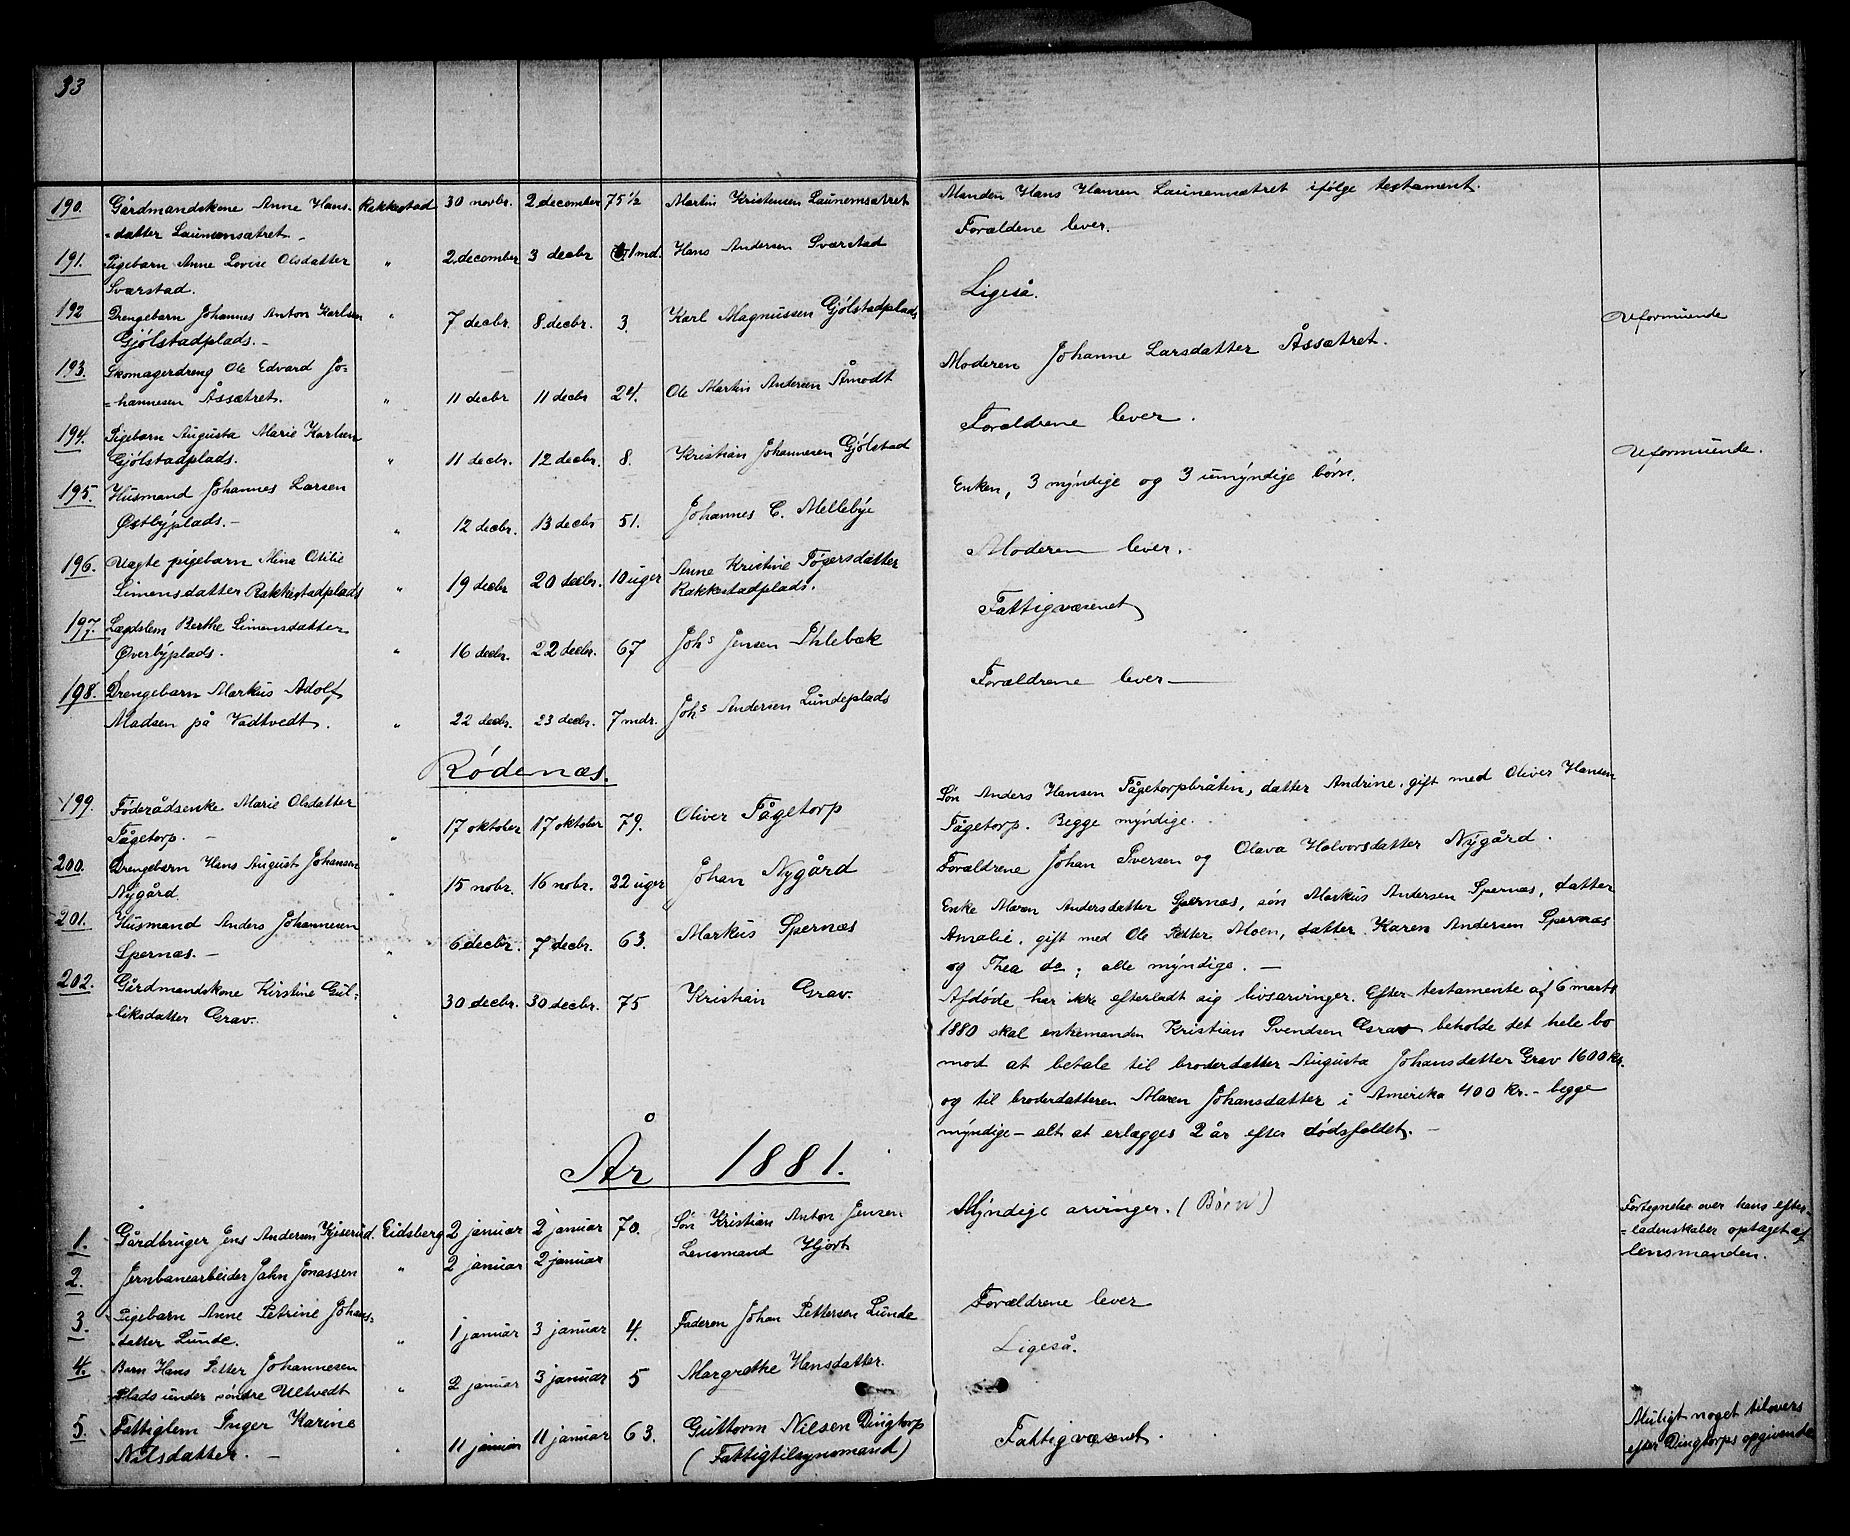 33
190. Gårdmandskone Anne Hans- Rakkestad 30 novbr. 2 december 75 1/2 Martin Kristensen Launemsætret Manden Hans Hansen Launemsætret ifølge testament.
=datter Launemsætret -
191. Pigebarn Anne Lovise Olsdatter " 2 december 3 decbr 1 md. Hans Andersen Sværstad Forældene lever.
Sværstad.
192 Drengebarn Johannes Anton Karlsen " 7 decbr. 8 decbr. 3. Karl Magnussen Gjølstadplads Ligeså. Uformuende
Gjølstadplads. -
193. Skomagerdreng Ole Edvard Jo-
=hannesen Åssætret. " 11 decbr 11 decbr 24. Ole Martin Andersen Åmodt Moderen Johanne Larsdatter Åssætret.
194. Pigebarn Augusta Marie Karlsen
Gjølstadplads. " 11 decbr. 12 decbr. 8. Kristian Johannesen Gjølstad Forældrene lever. Uformuende.
195. Husmand Johannes Larsen
Østbyplads. - " 12 decbr. 13 decbr 51. Johannes C. Mellebye Enken, 3 myndige og 3 umyndige børn.
196. Uægte pigebarn Mina Otilie
Simensdatter Rakkestadplads " 19 decbr 20 decbr. 10 uger Anne Kristine Tøgersdatter Moderen lever.
Rakkestadplads.
197. Lægdslem Berthe Simensdatter
Øverbyplads. " 16 decbr. 22 decbr. 67 Johs Jensen Ihlebæk Fattigvæsenet
198. Drengebarn Markus Adolf
Madsen på Vadtvedt. " 22 decbr. 23 decbr. 7 mdr. Johs Andersen Lundeplads Forældrene lever
Rødenæs.
199. Føderådsenke Marie Olsdatter Søn Anders Hansen Tågetorpbråten, datter Andrine, gift med Oliver Hansen
Tågetorp. - " 17 oktober 17 oktober 79. Oliver Tågetorp Tågetorp. Begge myndige.
200. Drengebarn Hans August Johansen Forældrene Johan Iversen og Olava Halvorsdatter Nygård.
Nygård. " 15 nobr. 16 nobr. 22 uger Johan Nygård
201. Husmand Anders Johannesen Enke Maren Andersdatter Spernæs, søn Markus Andersen Spernæs, datter
Spernæs. - " 6 decbr. 7 decbr. 63. Markus Spernæs Amalie, gift med Ole Petter Moen, datter Karen Andersen Spernæs
og Thea do; alle myndige. -
202. Gårdmandskone Kirstine Gul- Afdøde har ikke efterladt sig livsarvinger. Efter testamente af 6 marts
=liksdatter Grav. " 30 decbr. 30 decbr. 75 Kristian Grav. 1880 skal enkemanden Kristian Svendsen Grav beholde det hele bo
mod at betale til broderdatter Augusta Johansdatter Grav 1600 kr.
og til broderdatteren Maren Johansdatter i Amerika 400 kr. - begge
myndige - alt at erlægges 2 år efter dødsfaldet. -
År 1881.
1. Gårdbruger Jens Andersen Kjiserud. Eidsberg 2 januar 2 januar 70. Søn Kristian Anton Jensen Myndige arvinger. (Børn) Fortegnelse over hans efter-
=ladenskaber optaget af
lensmanden.
2. Jernbanearbeider Jahn Jonassen " 2 januar 2 januar Lensmand Hjort
3. Pigebarn Anne Petrine Johans-
=datter Lunde. " 1 januar 3 januar 4. Faderen Johan Pettersen Lunde Forældrene lever
4. Barn Hans Petter Johannesen
Plads under søndre Ultvedt " 2 januar 3 januar 5 Margrethe Hansdatter. Ligeså.
5. Fattiglem Inger Karine
Nilsdatter. - " 11 januar 11 januar 63. Guttorm Nilsen Dingtorp Fattigvæsenet. Muligt noget tilovers
(Fattigtilsynsmand) efter Dingtorps opgivende